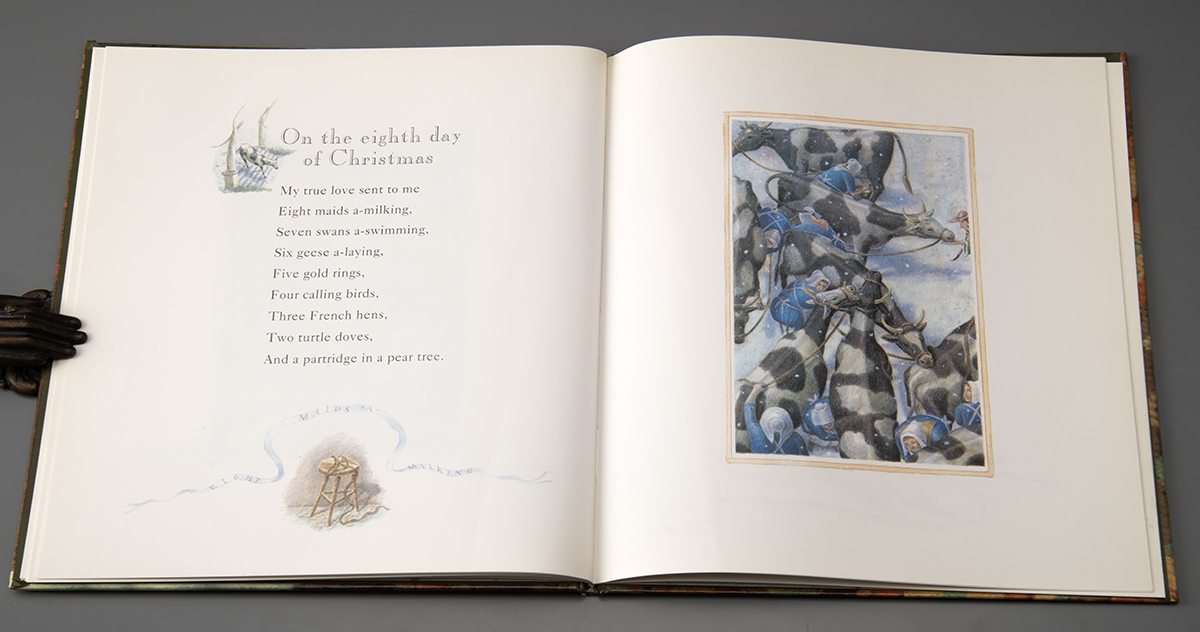 On the eighth day
of Christmas
My true love sent to me
Eight maids a-milking,
Seven swans a-swimming,
Six geese a-laying,
Five gold rings,
Four calling birds,
Three French hens,
Two turtle doves,
And a partridge in a pear tree.
EIGHT MAIDS A MILKING